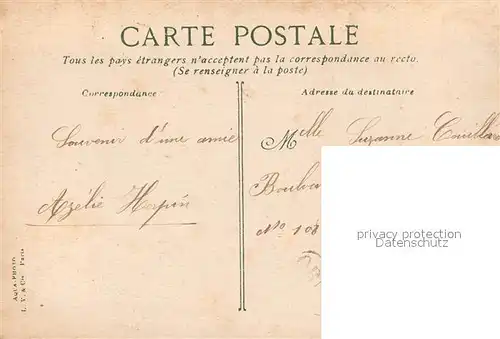 CARTE POSTALE
Tous les pays étrangers n'acceptent pas la correspondance au recto.
(Se renseigner à la poste)
Correspondance
Adresse du destinataire
Souvenir d'une amie
Azélie
Melle Suzanne
No 108
privacy protection
Datenschutz
AQUA-PHOTO
L. V. & Cie Paris